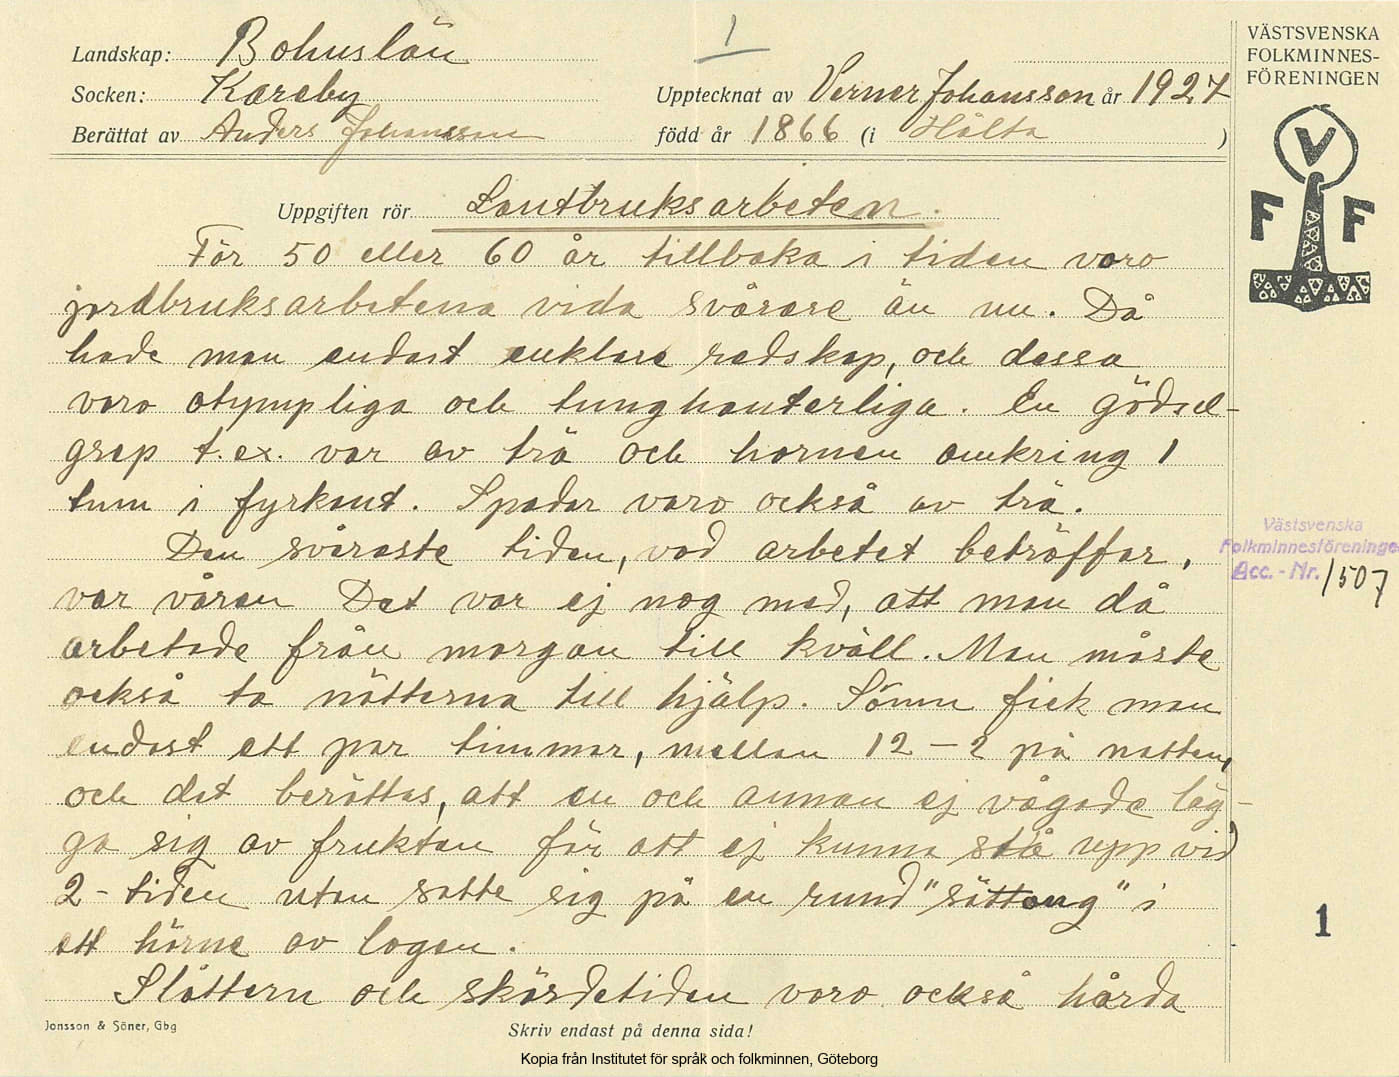 1
Landskap: Bohuslän
Socken: Kareby
Upptecknat av Verner Johansson år 1927
Berättat av Anders Johansson
född år 1866 (i Hålta )
Uppgiften rör Lantbruksarbeten.
För 50 eller 60 år tillbaka i tiden voro
jordbruksarbetena vida svårare än nu. Då
hade man endast enklare redskap, och dessa
voro otympliga och tunghanterliga. En gödsel-
grep t.ex. var av trä och hornen omkring 1
tum i fyrkant. Spadar voro också av trä.
Den svåraste tiden, vad arbetet beträffar,
var våren Det var ej nog med, att man då
arbetade från morgon till kväll. Man måste
också ta nätterna till hjälp. Sömn fick man
endast ett par timmar, mellan 12-2 på natten,
och det berättas, att en och annan ej vågade läg-
ga sig av fruktan för att ej kunna stå upp vid
2-tiden utan satte sig på en rund "sättong" i
ett hörne av logen.
Slåttern och skördetiden voro också hårda
Jonsson & Söner, Gbg
Skriv endast på denna sida!
Kopia från Institutet för språk och folkminnen, Göteborg
VÄSTSVENSKA
FOLKMINNES-
FÖRENINGEN
V
F F
Västsvenska
Folkminnesföreningen
Acc.-Nr. 1507
1